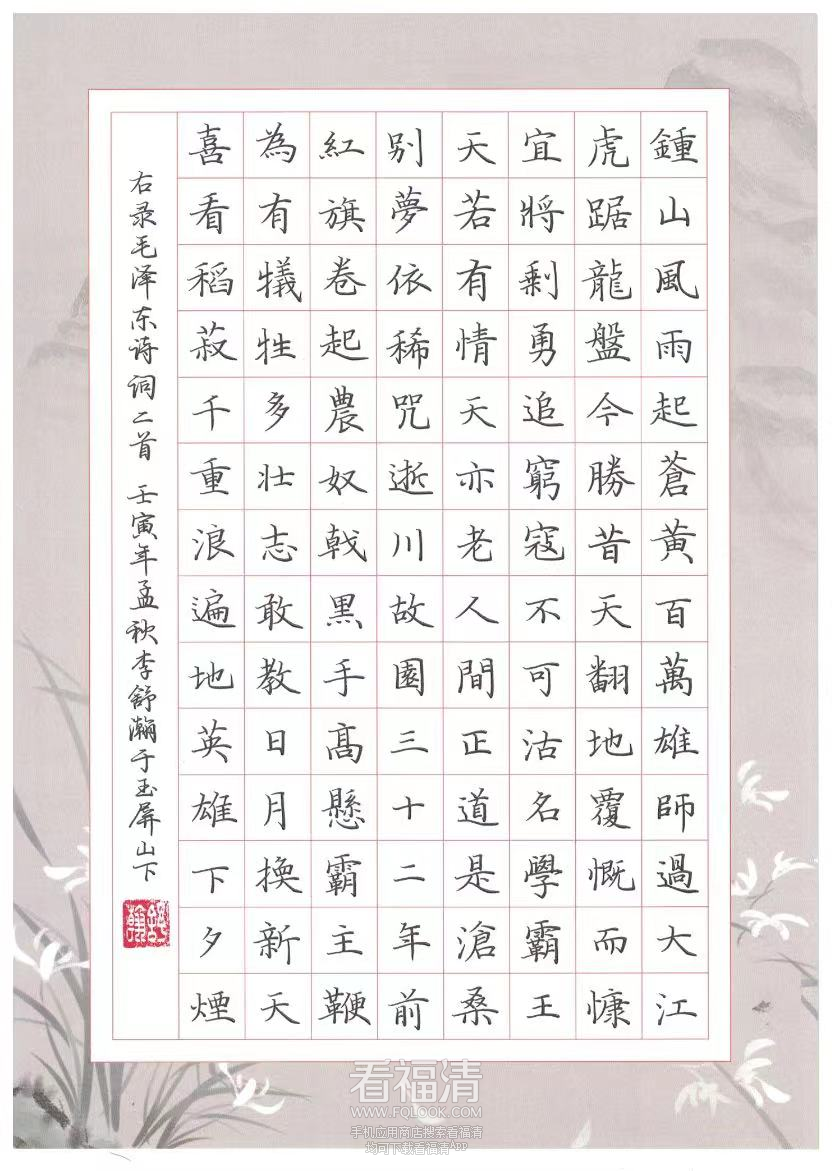 鍾山風雨起蒼黄百萬雄師過大江
虎踞龍盤今勝昔天翻地覆慨而慷
宜將剩勇追窮寇不可沽名學霸王
天若有情天亦老人間正道是滄桑
别夢依稀咒逝川故園三十二年前
紅旗卷起農奴戟黑手高懸霸主鞭
為有犧牲多壮志敢教日月換新天
喜看稻菽千重浪遍地英雄下夕煙
右录毛泽东诗词二首 壬寅年孟秋李舒瀚于玉屏山下
看福清
WWW.FQLOOK.COM
手机应用商店搜索看福清
均可下载看福清App